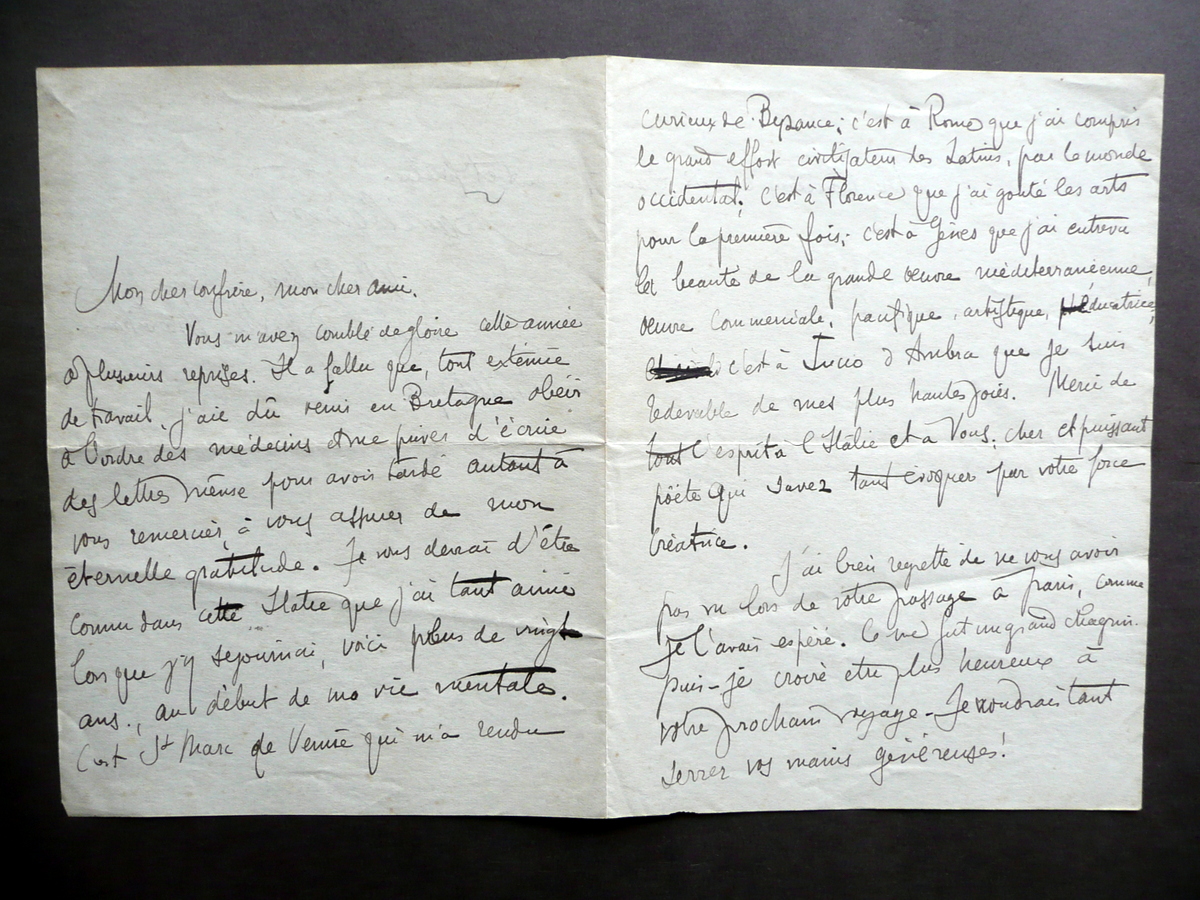 Mon cher confrère, mon cher ami.
Vous m'avez comblé de gloire cette année
à plusieurs reprises. Il a fallu que, tout exténué
de travail, j'aie dû venir en Bretagne obéir
à l'ordre des médecins et me priver d'écrire
des lettres même pour avoir tardé autant à
vous remercier, à vous assurer de mon
éternelle gratitude. Je vous devrai d'être
connu dans cette Italie que j'ai tant aimée
lorsque j'y séjournai, voici plus de vingt
ans, au début de ma vie mentale.
C'est St Marc de Venise qui m'a rendu
curieux de Byzance; c'est à Rome que j'ai compris
le grand effort civilisateur des Latins, par le monde
occidental; c'est à Florence que j'ai gouté les arts
pour la première fois; c'est à Gênes que j'ai entrevu
la beauté de la grande œuvre méditerranéenne,
œuvre commerciale, pacifique, artistique, éducatrice;
c'est à Lucio d'Ambra que je suis
redevable de mes plus hautes joies. Merci de
tout l'esprit à l'Italie et à Vous, cher et puissant
poëte qui savez tant évoquer par votre force
créatrice.
J'ai bien regretté de ne vous avoir
pas vu lors de votre passage à Paris, comme
je l'avais espéré. Ce me fut un grand chagrin.
Puis-je croire être plus heureux à
votre prochain voyage - Je voudrais tant
serrer vos mains généreuses!